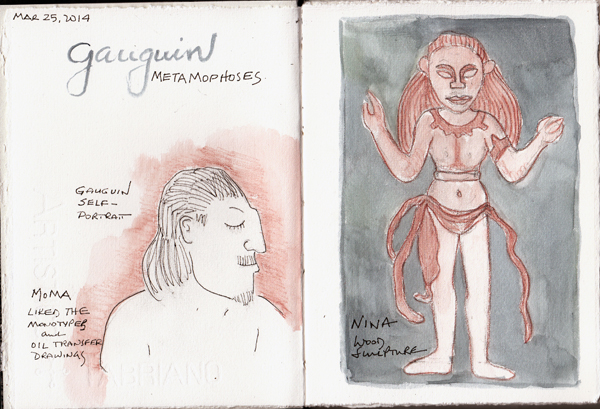 MAR 25, 2014
Gauguin
METAMOPHOSES
GAUGUIN
SELF-
PORTRAIT
MOMA
LIKED THE
MONOTYPES
and
OIL TRANSFER
DRAWINGS
FABRIANO
NINA
WOOD
SCULPTURE